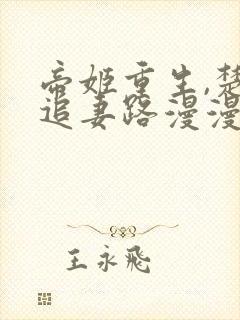 帝姬重生,楚
追妻路漫漫
王永飛